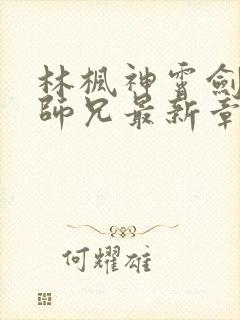 林楓神霄劍
師兄最新章
何耀雄